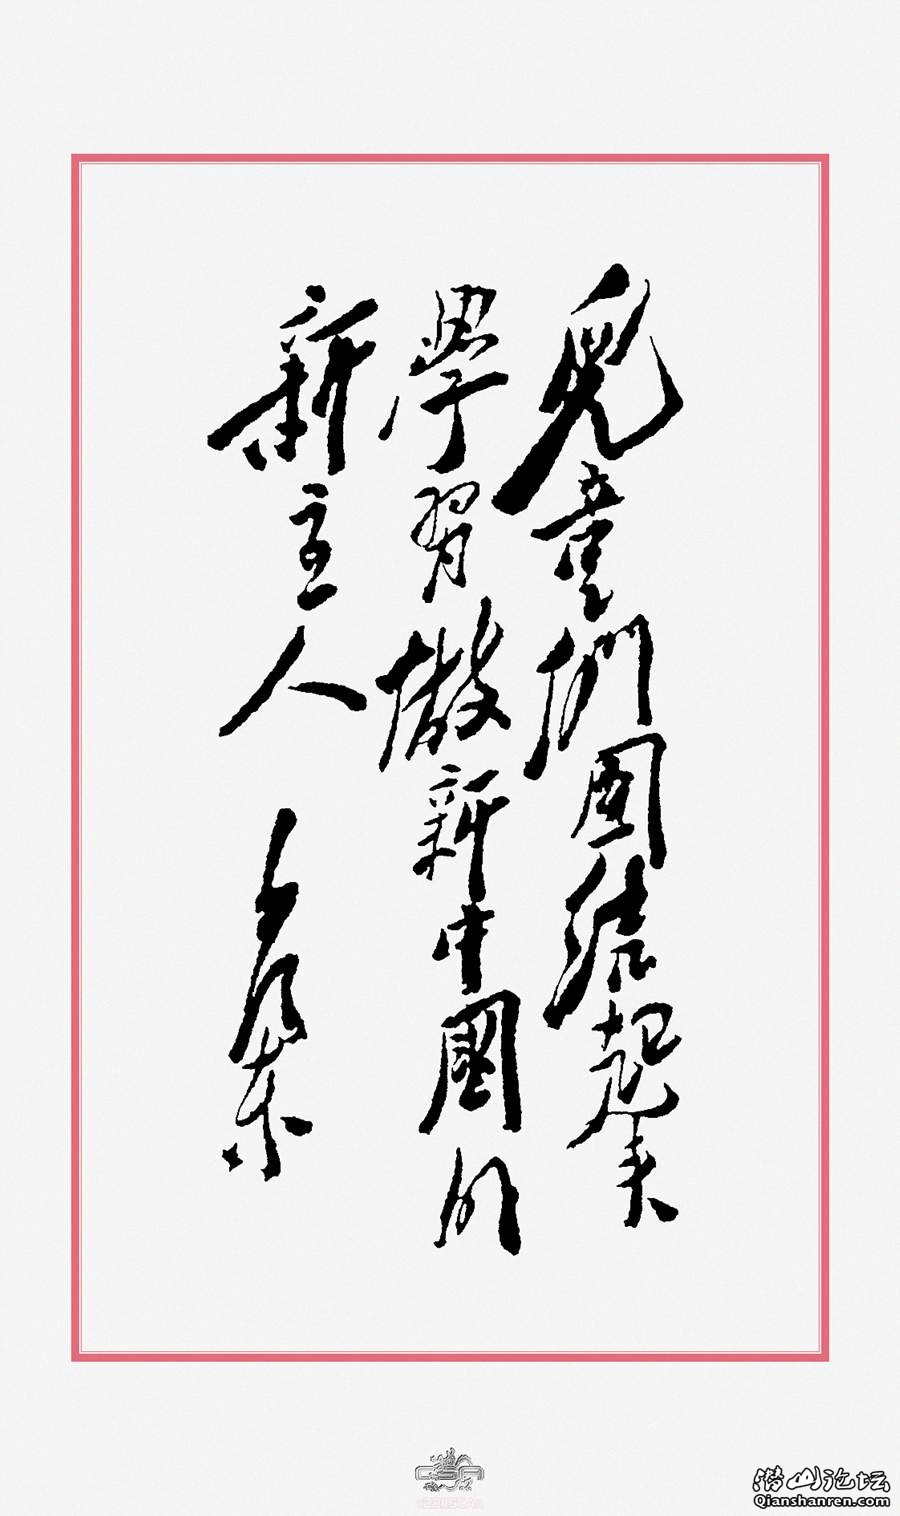 兒童們团结起来
學習做新中國的
新主人
毛泽东
潜山论坛
Qianshanren.com